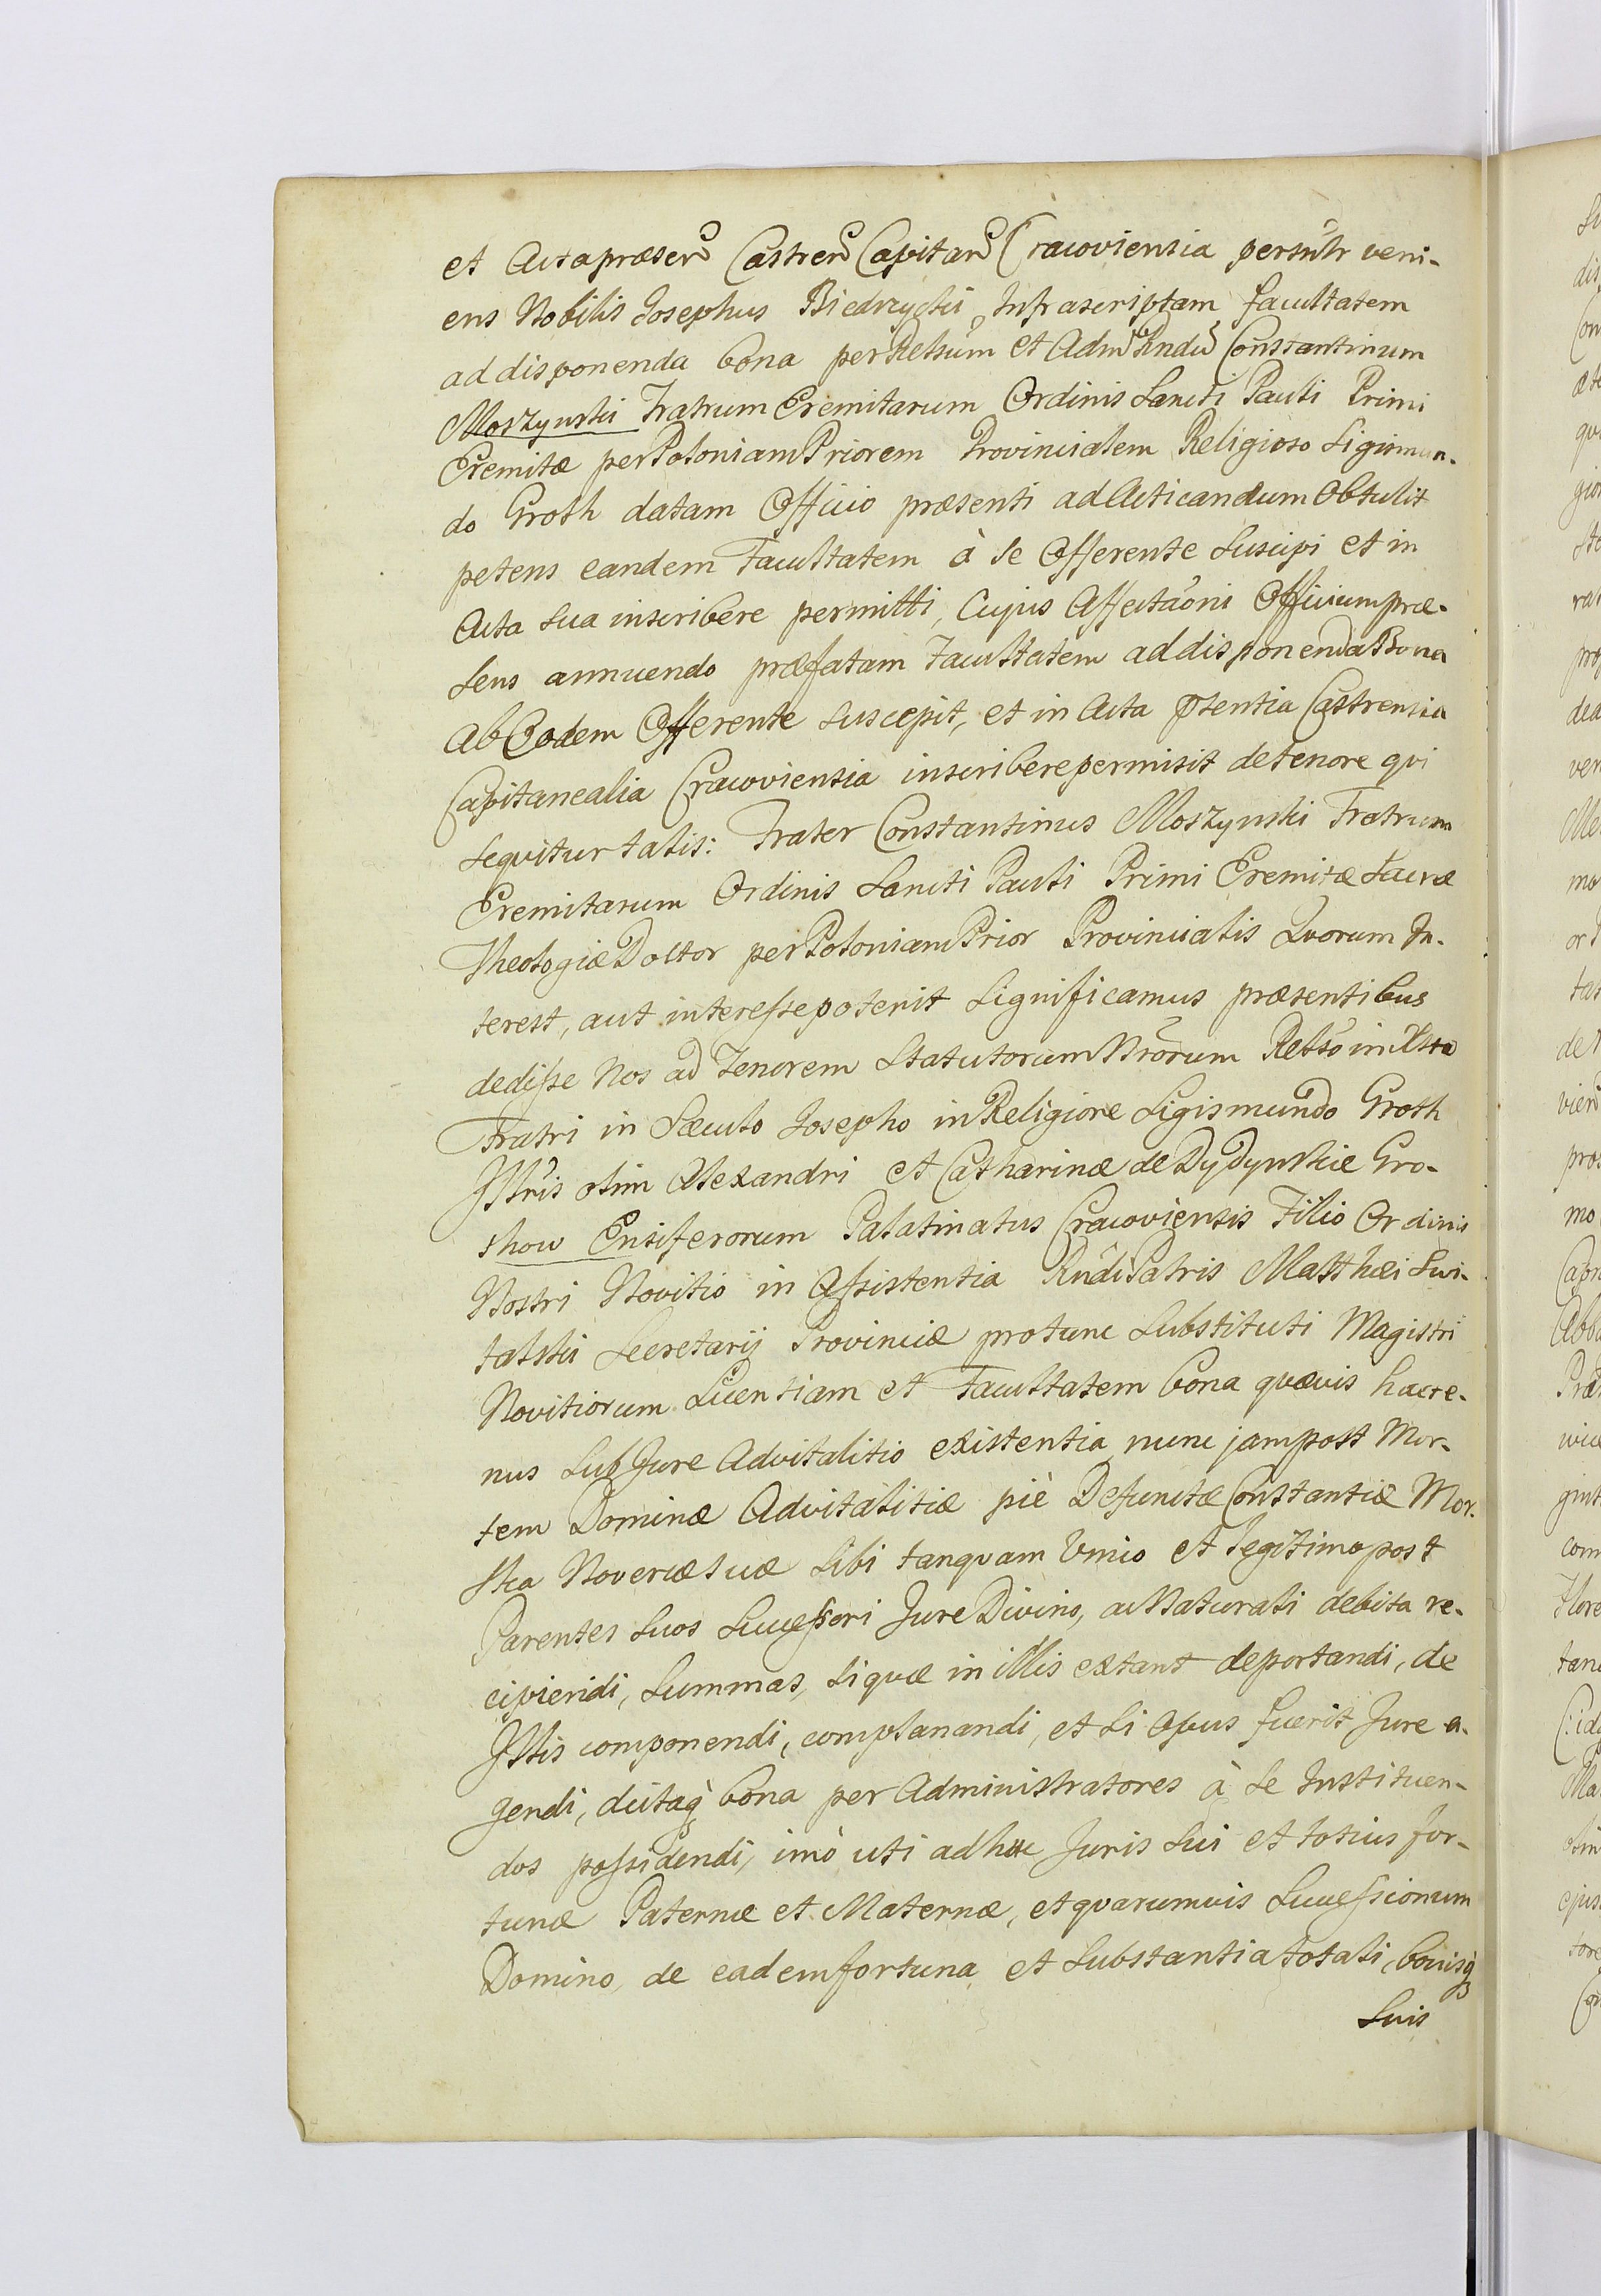 et Acta præsen Castren Capitan Cracoviensia personlr veni-
ens Nobilis Josephus Biedrzycki, Infrascriptam facultatem
ad disponenda bona per Relsum et Adm Rndu Constantinum
Moszynski Fratrum Eremitarum Ordinis Sancti Pauli Primi
Eremitæ per Poloniam Priorem Provincialem Religioso Sigismun-
do Groth datam Officio præsenti ad Acticandum Obtulit
petens eandem Facultatem à se Offerente suscipi et in
Acta sua inscribere permitti, Cujus Affectaoni Officium præ-
sens annuendo præfatam Facultatem ad disponenda Bona
ab Eodem Offerente suscepit, et in Acta pñsentia Castrensia
Capitanealia Cracoviensia inscribere permisit de tenore qvi
seqvitur talis: Frater Constantinus Moszynski Fratrum
Eremitarum Ordinis Sancti Pauli Primi Eremitæ Sacræ
Theologiæ Doctor per Poloniam Prior Provincialis Qvorum In-
terest, aut interesse poterit Significamus præsentibus
dedisse Nos ad Tenorem Statutorum Nrorum Relso in Xsto
Fratri in Sæculo Josepho in Religione Sigismundo Groth
Jllris olim Alexandri et Catharinæ de Dydynskie Gro-
thow Ensiferorum Palatinatus Cracoviensis Filio Ordinis
Nostri Novitio in Assistentia Rndi Patris Matthæi Swi-
talski Secretarij Provinciæ pro tunc Substituti Magistri
Novitiorum Licentiam et Facultatem bona qvævis hacte-
nus sub Jure Advitalitio existentia nunc jam post Mor-
tem Dominæ Advitalitiæ piè Defunctæ Constantiæ Mor-
ska Novercæ suæ sibi tanqvam Unico et legitimo post
Parentes suos Successori Jure Divino, ac Naturali debita re-
cipiendi, Summas, siqvæ in illis extant deportandi, de
Jllis componendi, complanandi, et si opus fuerit Jure a-
gendi, dictaq; bona per Administratores à se Instituen-
dos possidendi, imò uti adhuc Juris sui et totius for-
tunæ Paternæ et Maternæ, et qvarumvis Successionum
Domino, de eadem fortuna et Substantia totali, bonisq;
Suis